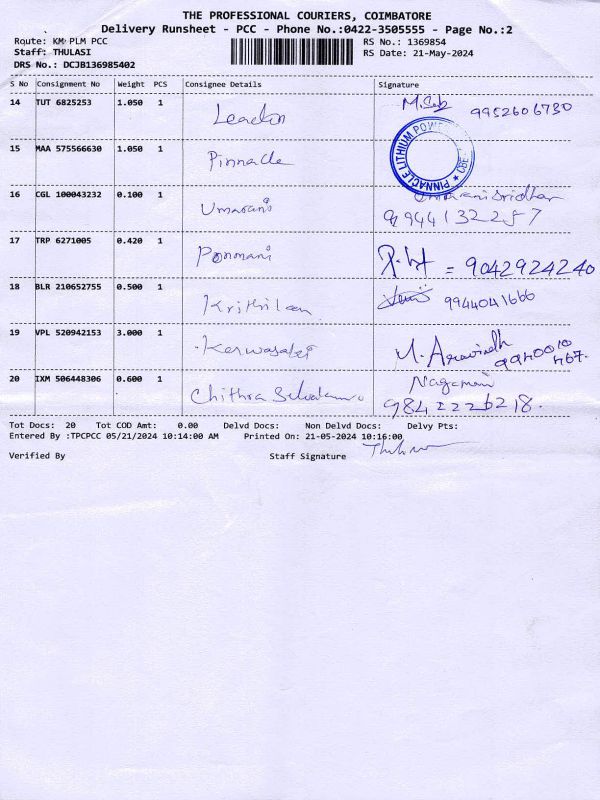 THE PROFESSIONAL COURIERS, COIMBATORE
Delivery Runsheet - PCC - Phone No.:0422-3505555 - Page No.:2
Route: KM PLM PCC
RS No.: 1369854
Staff: THULASI
RS Date: 21-May-2024
DRS No.: DCJB136985402
S No Consignment No Weight PCS Consignee Details Signature
14 TUT 6825253 1.050 1 9952606730
15 MAA 575566630 1.050 1 Pinnacle PINNACLE LITHIUM POWER
16 CGL 100043232 0.100 1 Umarani
17 TRP 6271005 0.420 1 Ponmani = 9042924240
18 BLR 210652755 0.500 1 9944041666
19 VPL 520942153 3.000 1 M. Aravindh
20 IXM 506448306 0.600 1 Chithra Nagamani
9842226218.
Tot Docs: 20 Tot COD Amt: 0.00 Delvd Docs: Non Delvd Docs: Delvy Pts:
Entered By :TPCPCC 05/21/2024 10:14:00 AM Printed On: 21-05-2024 10:16:00
Verified By Staff Signature